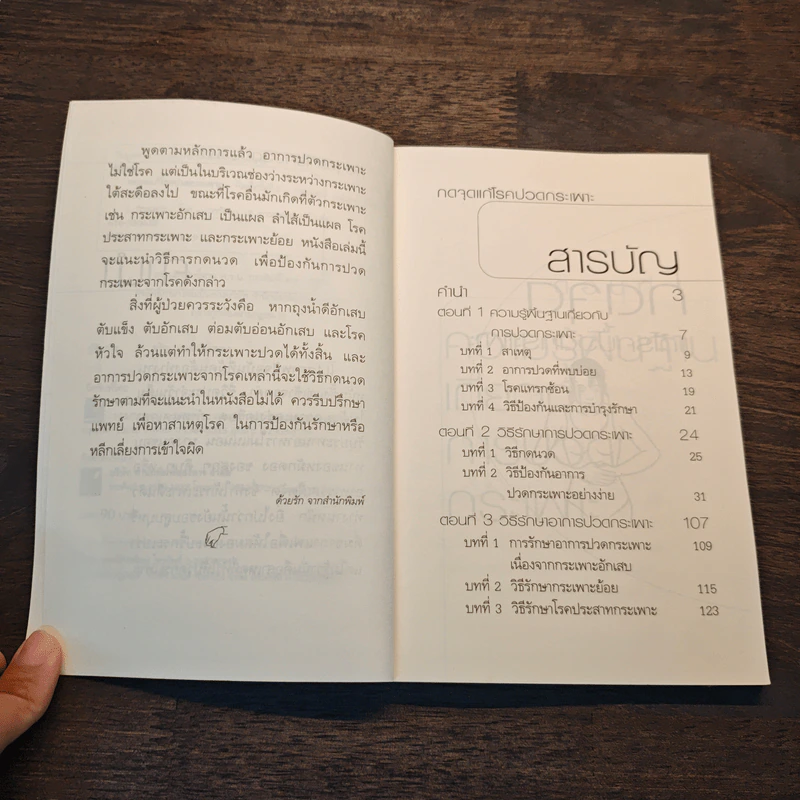 พูดตามหลักการแล้ว อาการปวดกระเพาะ
ไม่ใช่โรค แต่เป็นในบริเวณช่องว่างระหว่างกระเพาะ
ใต้สะดือลงไป ขณะที่โรคอื่นมักเกิดที่ตัวกระเพาะ
เช่น กระเพาะอักเสบ เป็นแผล ลำไส้เป็นแผล โรค
ประสาทกระเพาะ และกระเพาะย้อย หนังสือเล่มนี้
จะแนะนำวิธีการกดนวด เพื่อป้องกันการปวด
กระเพาะจากโรคดังกล่าว
สิ่งที่ผู้ป่วยควรระวังคือ หากถุงน้ำดีอักเสบ
ตับแข็ง ตับอักเสบ ต่อมตับอ่อนอักเสบ และโรค
หัวใจ ล้วนแต่ทำให้กระเพาะปวดได้ทั้งสิ้น และ
อาการปวดกระเพาะจากโรคเหล่านี้จะใช้วิธีกดนวด
รักษาตามที่จะแนะนำในหนังสือไม่ได้ ควรรีบปรึกษา
แพทย์ เพื่อหาสาเหตุโรค ในการป้องกันรักษาหรือ
หลีกเลี่ยงการเข้าใจผิด
ด้วยรัก จากสำนักพิมพ์
กดจุดแก้โรคปวดกระเพาะ
สารบัญ
คำนำ 3
ตอนที่ 1 ความรู้พื้นฐานเกี่ยวกับ
การปวดกระเพาะ 7
บทที่ 1 สาเหตุ 9
บทที่ 2 อาการปวดที่พบบ่อย 13
บทที่ 3 โรคแทรกซ้อน 19
บทที่ 4 วิธีป้องกันและการบำรุงรักษา 21
ตอนที่ 2 วิธีรักษาการปวดกระเพาะ 24
บทที่ 1 วิธีกดนวด 25
บทที่ 2 วิธีป้องกันอาการ
ปวดกระเพาะอย่างง่าย 31
ตอนที่ 3 วิธีรักษาอาการปวดกระเพาะ 107
บทที่ 1 การรักษาอาการปวดกระเพาะ 109
เนื่องจากกระเพาะอักเสบ
บทที่ 2 วิธีรักษากระเพาะย้อย 115
บทที่ 3 วิธีรักษาโรคประสาทกระเพาะ 123